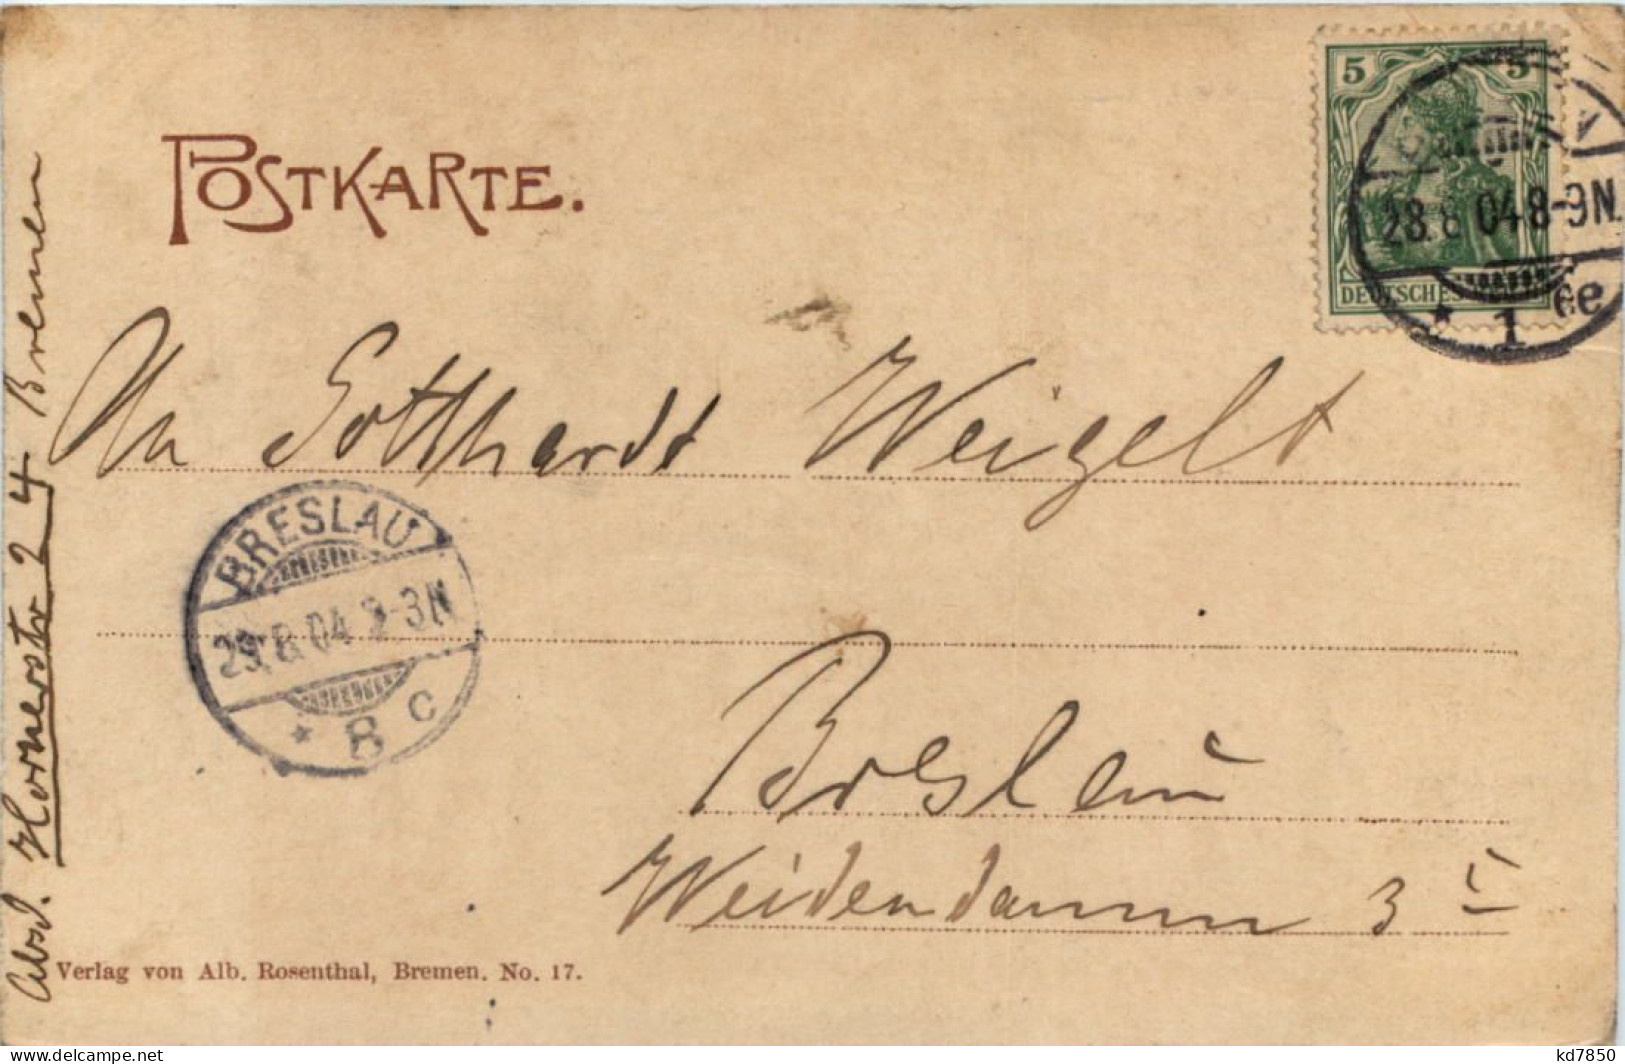 POSTKARTE.
5 5
DEUTSCHES
28.8.04 8-9N.
* 1 e
An Gotthardt Weigelt
BRESLAU
29.8.04 2-3N
* 8 c
Breslau
Weidendamm 3 I
Absd. Hornerstr 24 Bremen
Verlag von Alb. Rosenthal, Bremen. No. 17.
www.delcampe.net
kd7850